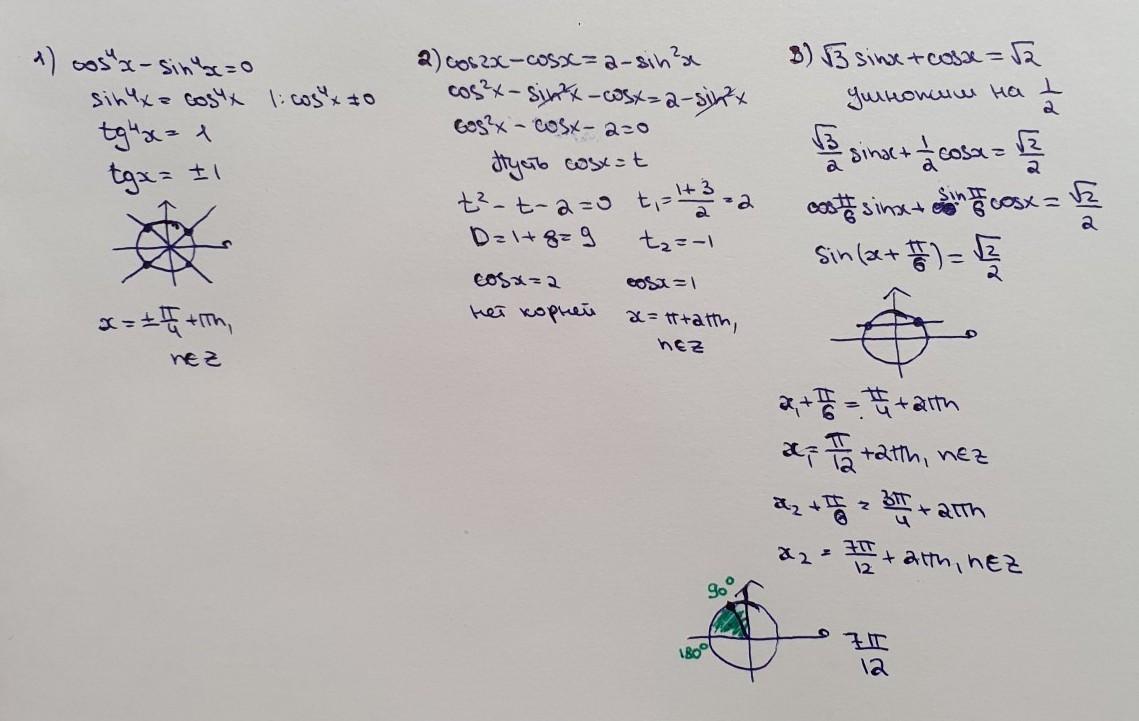 1) cos⁴x - sin⁴x = 0
sin⁴x = cos⁴x |: cos⁴x ≠ 0
tg⁴x = 1
tgx = ±1
x = ± π/4 + πn,
n∈Z
2) cos2x - cosx = 2 - sin²x
cos²x - sin²x - cosx = 2 - sin²x
cos²x - cosx - 2 = 0
Пусть cosx = t
t² - t - 2 = 0 t₁ = (1+3)/2 = 2
D = 1 + 8 = 9 t₂ = -1
cosx = 2 cosx = 1
нет корней x = π + 2πn,
n∈Z
3) √3 sinx + cosx = √2
умножим на 1/2
√3/2 sinx + 1/2 cosx = √2/2
cos π/6 sinx + sin π/6 cosx = √2/2
sin(x + π/6) = √2/2
x₁ + π/6 = π/4 + 2πn
x₁ = π/12 + 2πn, n∈Z
x₂ + π/6 = 3π/4 + 2πn
x₂ = 7π/12 + 2πn, n∈Z
90°
180°
7π/12